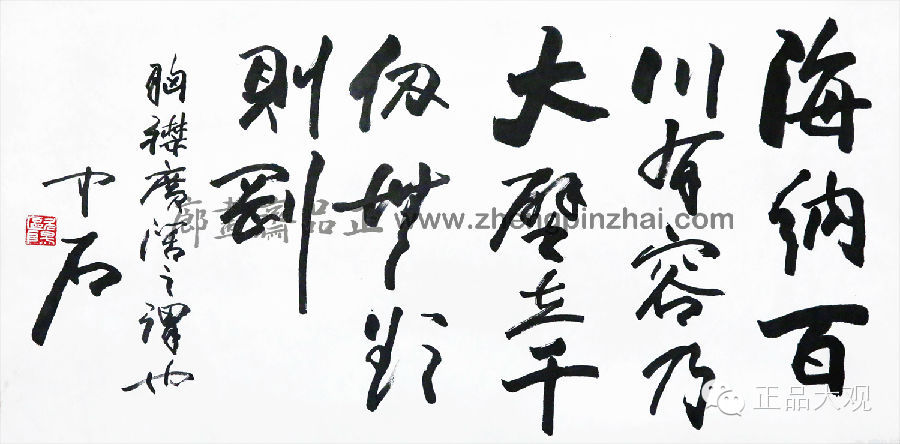 海纳百
川有容乃
大壁立千
仞無欲
則剛
胸襟廣阔之谓也
中石
廊畫齋品正 www.zhengpinzhai.com
正品大观